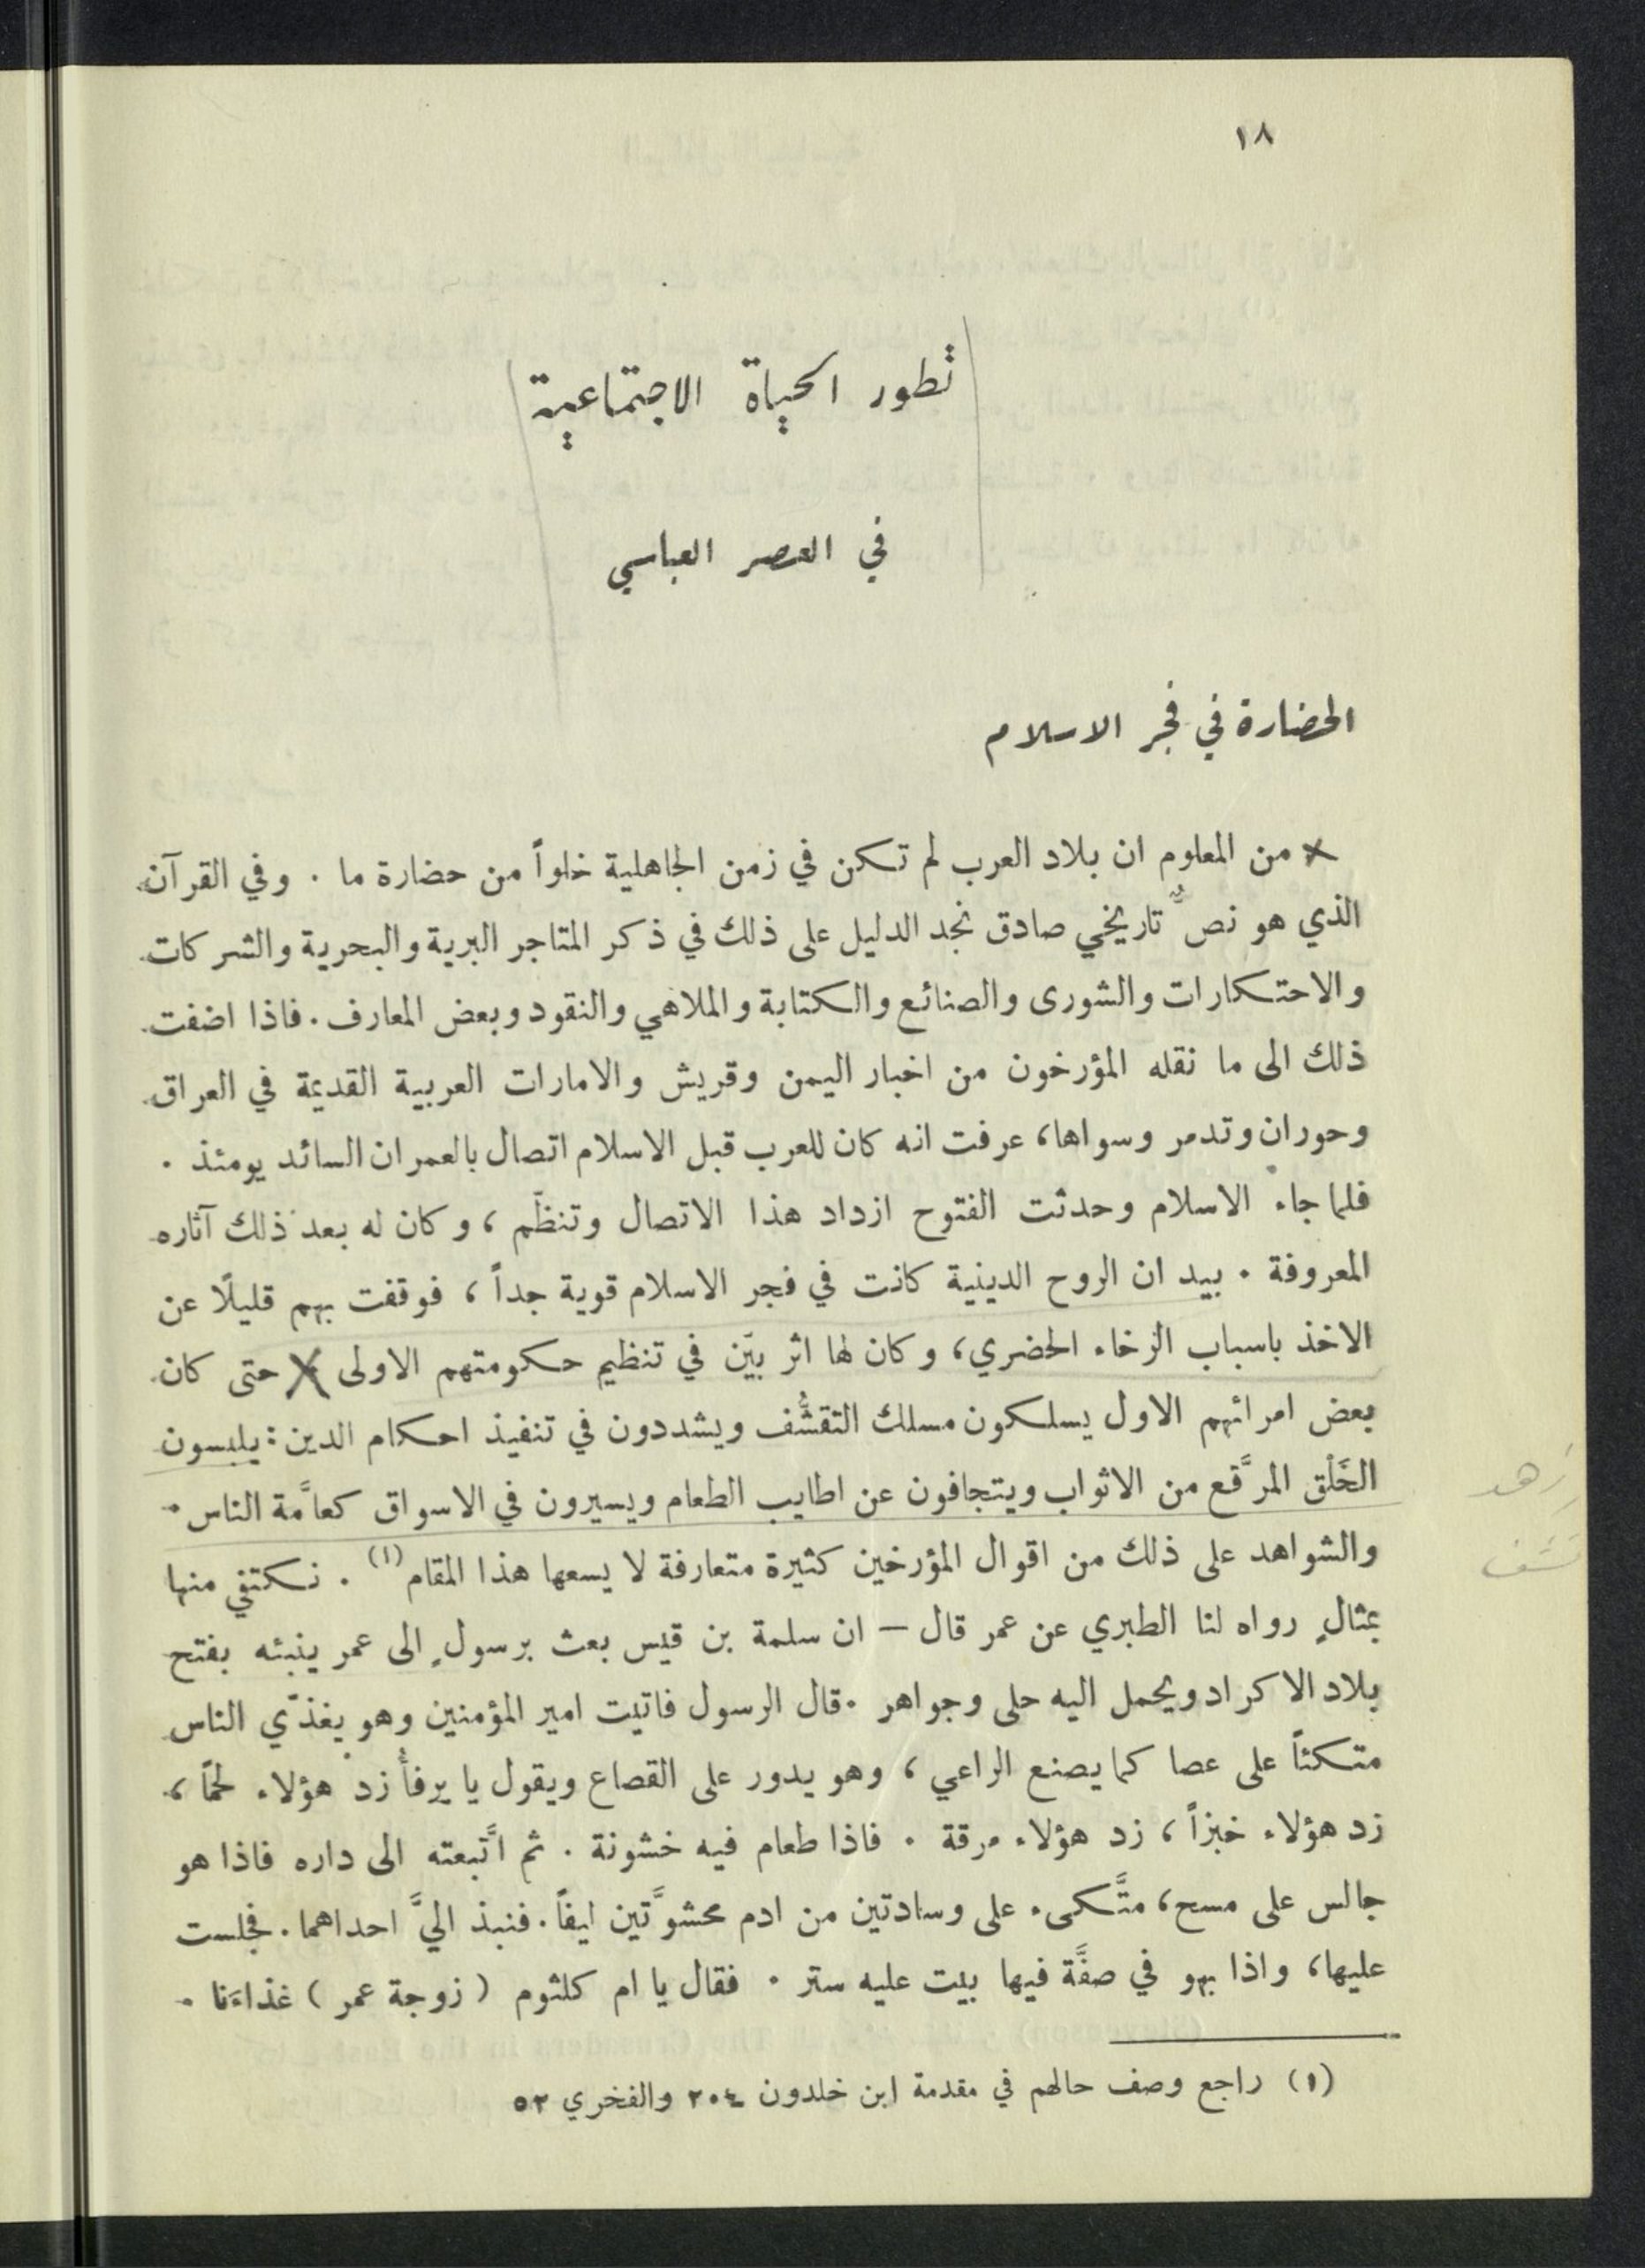 ١٨
تطور الحياة الاجتماعية
في العصر العباسي
الحضارة في فجر الاسلام
من المعلوم ان بلاد العرب لم تكن في زمن الجاهلية خلواً من حضارة ما . وفي القرآن
الذي هو نصٌّ تاريخي صادق نجد الدليل على ذلك في ذكر المتاجر البرية والبحرية والشركات
والاحتكارات والشورى والصنائع والكتابة والملاهي والنقود وبعض المعارف . فاذا اضفت
ذلك الى ما نقله المؤرخون من اخبار اليمن وقريش والامارات العربية القديمة في العراق
وحوران وتدمر وسواها، عرفت انه كان للعرب قبل الاسلام اتصال بالعمران السائد يومئذ .
فلما جاء الاسلام وحدثت الفتوح ازداد هذا الاتصال وتنظّم ، وكان له بعد ذلك آثاره
المعروفة . بيد ان الروح الدينية كانت في فجر الاسلام قوية جداً ، فوقفت بهم قليلًا عن
الاخذ باسباب الرخاء الحضري، وكان لها اثر بيّن في تنظيم حكومتهم الاولى حتى كان
بعض امرائهم الاول يسلكون مسلك التقشُّف ويشددون في تنفيذ احكام الدين : يلبسون
الخَلْق المرَّقع من الاثواب ويتجافون عن اطايب الطعام ويسيرون في الاسواق كعامَّة الناس .
زهد
والشواهد على ذلك من اقوال المؤرخين كثيرة متعارفة لا يسعها هذا المقام (١) . نكتفي منها
بمثالٍ رواه لنا الطبري عن عمر قال – ان سلمة بن قيس بعث برسولٍ الى عمر ينبئه بفتح
بلاد الاكراد ويحمل اليه حلى وجواهر . قال الرسول فاتيت امير المؤمنين وهو يغذّي الناس
متكئاً على عصا كما يصنع الراعي ، وهو يدور على القصاع ويقول يا يرفأُ زد هؤلاء لحمًا ،
زد هؤلاء خبزاً ، زد هؤلاء مرقة . فاذا طعام فيه خشونة . ثم اتَّبعته الى داره فاذا هو
جالس على مسح، متَّكىء على وسادتين من ادم محشوَّتين ليفاً . فنبذ اليَّ احداهما . فجلست
عليها، واذا بهو في صفَّة فيها بيت عليه ستر . فقال يا ام كلثوم ( زوجة عمر ) غذاءَنا .
(١) راجع وصف حالهم في مقدمة ابن خلدون ٢٠٤ والفخري ٥٢